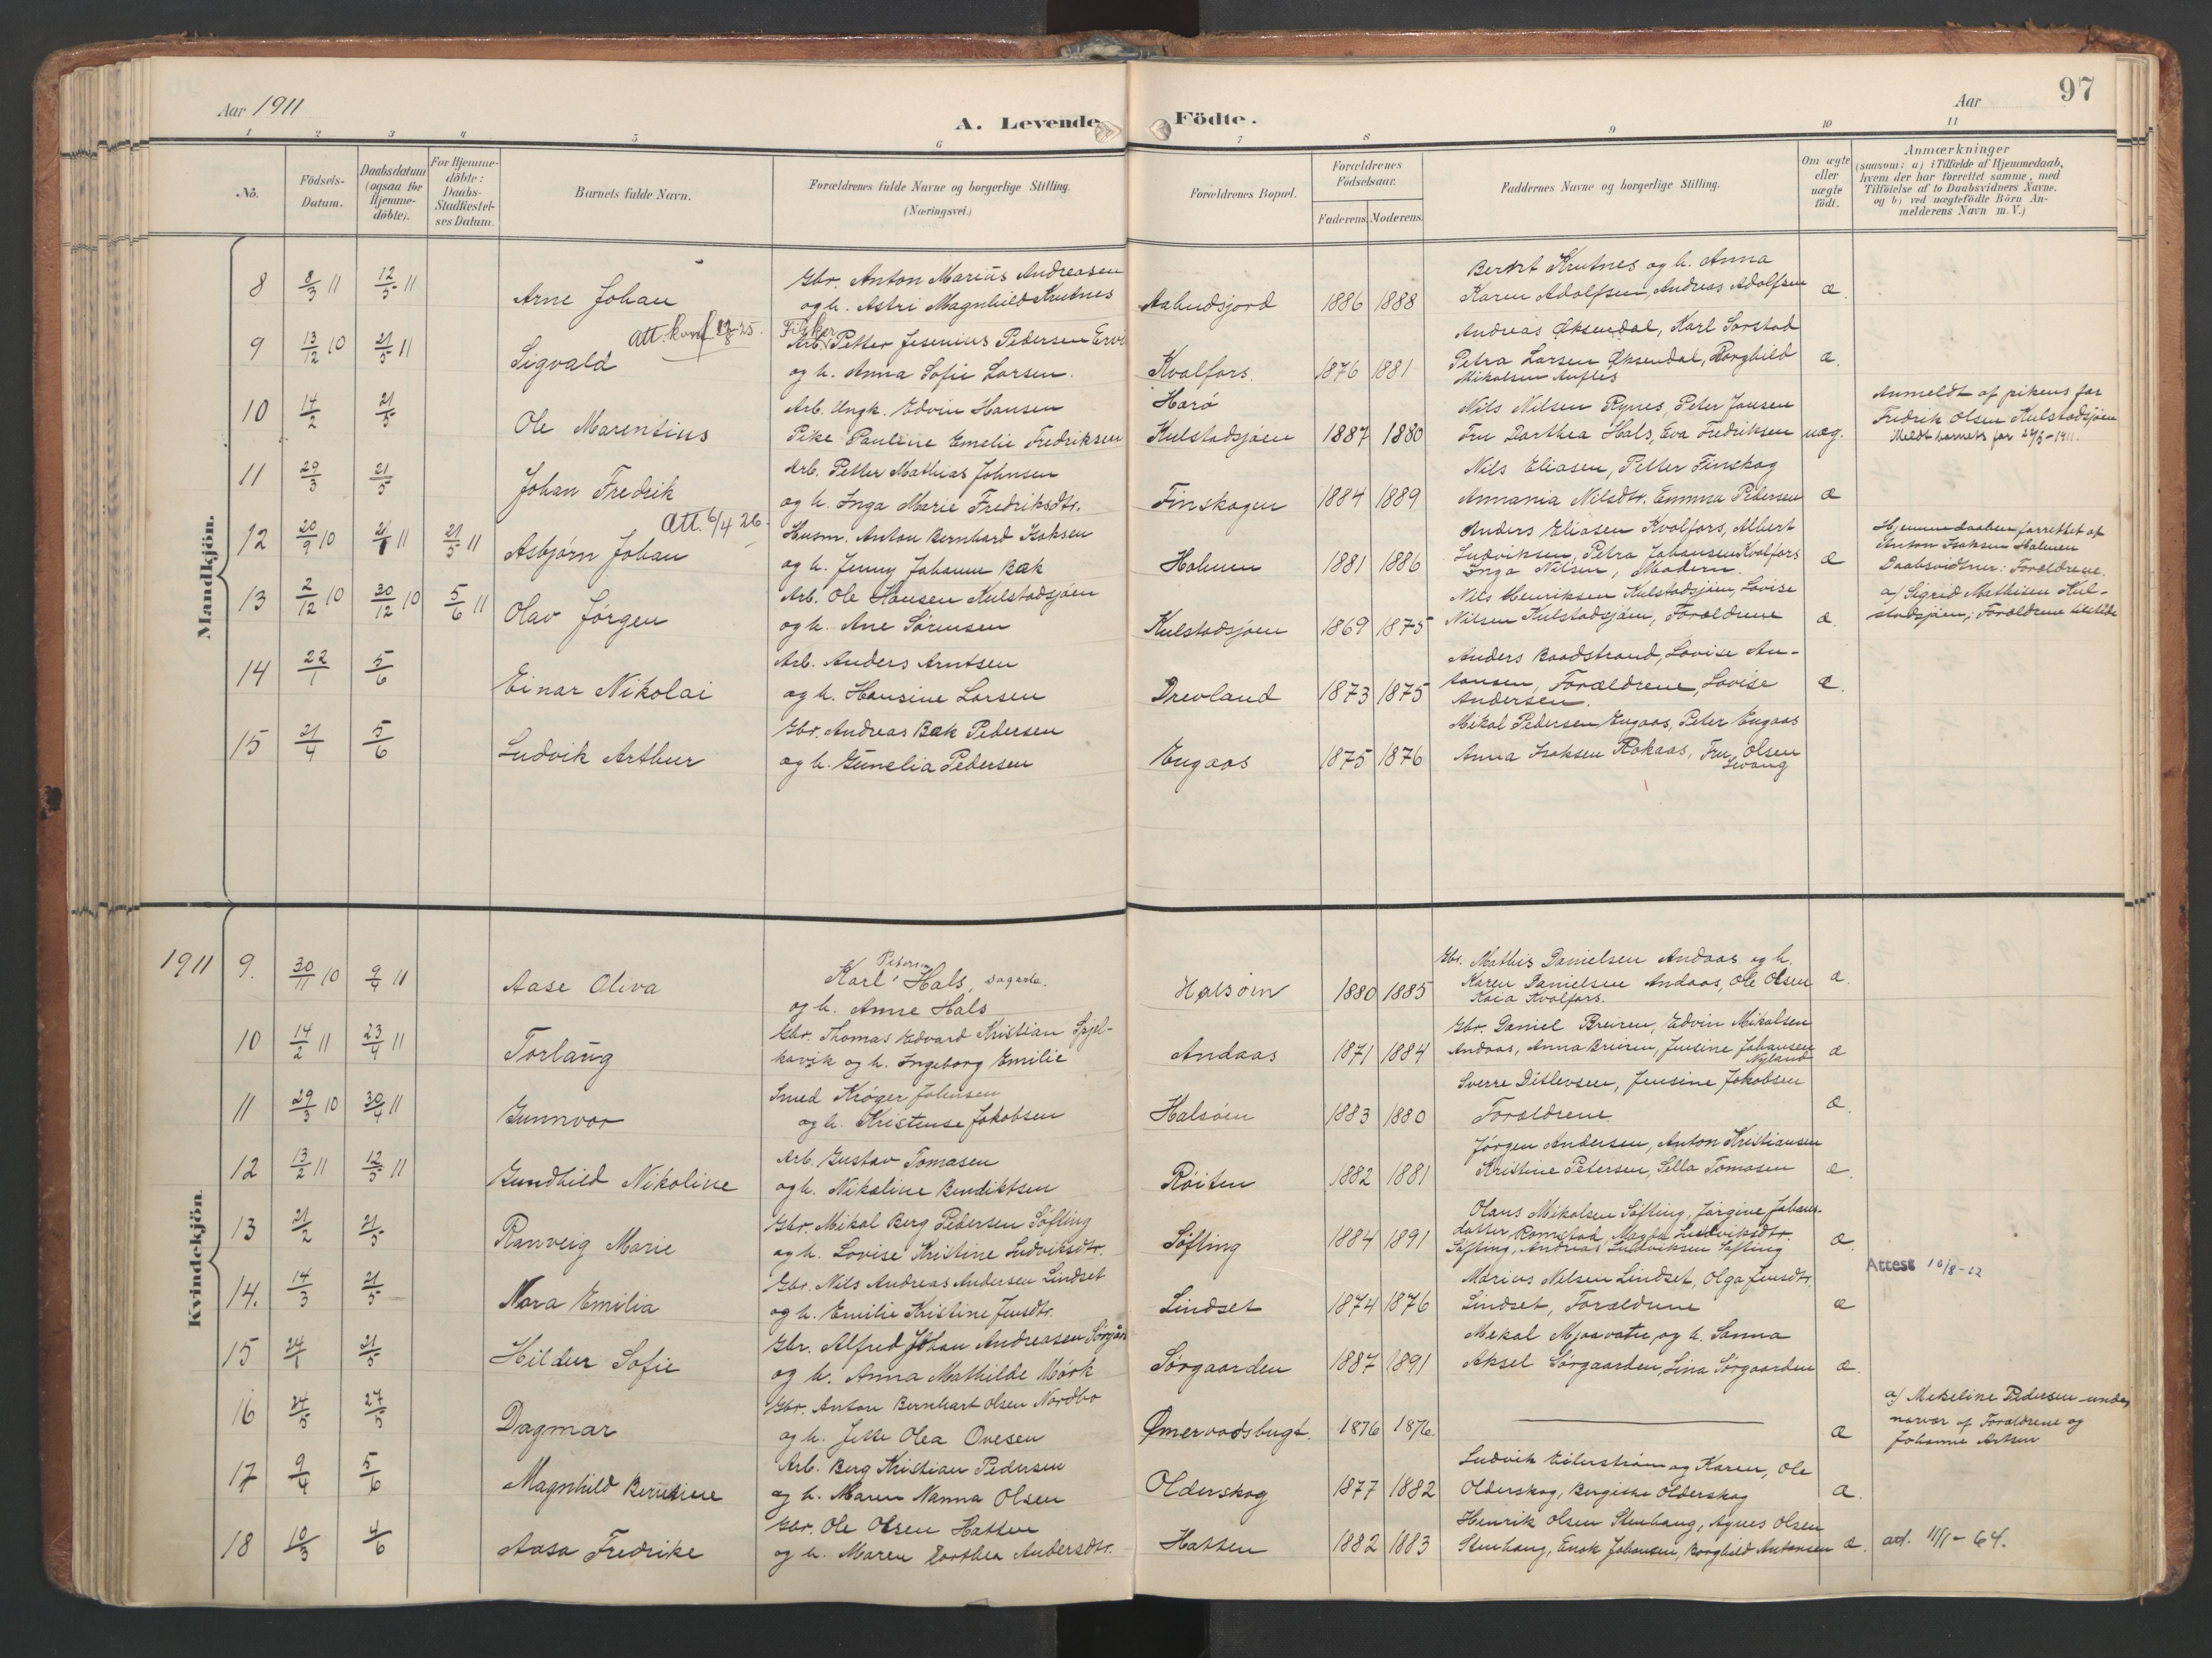 Aar 1911
A. Levende Födte.
Aar
97
1 2 3 4 5 6 7 8 9 10 11
No.
Födsels-
Datum.
Daabsdatum
(ogsaa for
Hjemme-
döbte).
For Hjemme-
döbte:
Daabs-
Stadfæstel-
ses Datum.
Barnets fulde Navn.
Forældrenes fulde Navne og borgerlige Stilling.
(Næringsvei.)
Forældrenes Bopæl.
Forældrenes
Födselsaar.
Faderens. Moderens.
Faddernes Navne og borgerlige Stilling.
Om ægte
eller
uægte
födt.
Anmærkninger
(saasom: a) i Tilfælde af Hjemmedaab,
hvem der har forrettet samme, med
Tilföielse af to Daabsvidners Navne.
og b) ved uægtefödte Börn An-
melderens Navn m. V.)
Mandkjön.
8 8/3 11 12/5 11
Arne Johan
Gbr. Anton Marius Andreasen
og h. Astri Magnhild Krutnes
Aabudsjord 1886 1888
Bernt Krutnes og h. Anna
Karen Adolfsen, Andreas Adolfsen
æ.
9 13/12 10 21/5 11
att. konf 12/8-25.
Sigvald
Fisker
Arb. Petter Jesenius Pedersen
og h. Anna Sofie Larsen.
Kvalfors. 1876 1881
Andreas Øksendal, Karl Sorstad
Petra Larsen Øksendal, Borghild
Mikalsen Aufles
æ.
10 14/2 21/5
Ole Marentius
Arb. Ungk. Edvin Hansen
Pike Pauline Emelie Fredriksen
Harø
Kulstadsjøen 1887 1880
Nils Nilsen Rynes, Peter Jansen
Fru Dorthea Hals, Eva Fredriksen
uæg.
Anmeldt af pikens far
Fredrik Olsen Kulstadsjøen
Meldt barnets far 27/3-1911.
11 29/3 21/5
Johan Fredrik
Arb. Petter Mathias Johnsen
og h. Inga Marie Fredriksdtr.
Finskogen 1884 1889
Nils Eliasen, Petter Finskog
Annania Nilsdtr. Emma Pedersen
æ
12 20/9 10 21/1 11 21/5 11
att. 6/4 26
Asbjørn Johan
Husm. Anton Bernhard Isaksen
og h. Jenny Johanne Bæk
Holmen 1881 1886
Anders Eliasen Kvalfors, Albert
Ludviksen, Petra Johansen Kvalfors
Inga Nilsen, Moderen.
æ
Hjemmedaaben forrettet af
Anton Isaksen Holmen
Daabsvidner: Forældrene.
13 2/12 10 30/12 10 5/6 11
Olav Jørgen
Arb. Ole Hansen Kulstadsjøen
og h. Ane Sørensen
Kulstadsjøen 1869 1875
Nils Henriksen Kulstadsjøen, Lovise
Nilsen Kulstadsjøen, Forældrene
æ.
a/ Sigrid Mathisen Kul-
stadsjøen; Forældrene tilstede
14 22/1 5/6
Einar Nikolai
Arb. Anders Arntsen
og h. Hansine Larsen
Drevland 1873 1875
Anders Baadstrand, Lovise An-
tonsen, Forældrene, Lovise
Andersen.
æ.
15 21/4 5/6
Ludvik Arthur
Gbr. Andreas Bæk Pedersen
og h. Gunelia Pedersen
Engaas 1875 1876
Mikal Pedersen Engaas, Peter Engaas
Anna Isaksen Rokaas, Fru Olsen
Kvindekjön.
1911 9. 30/11 10 9/4 11
Aase Oliva
Petersen
Karl Hals,
og h. Anne Hals
Halsøen 1880 1885
Gbr. Mathis Danielsen Andaas og h.
Karen Danielsen Andaas, Ole Olsen
Kaia Kvalfors.
æ.
10 14/2 11 23/4 11
Torlaug
Gbr. Thomas Edvard Kristian Spjel-
kavik og h. Ingeborg Emilie
Andaas 1871 1884
Gbr. Daniel Breiren, Edvin Mikalsen
Andaas, Anna Breiren, Jensine Johansen
Nyland
æ
11 29/3 10 30/4 11
Gunnvor
Smed Krøger Johnsen
og h. Kristense Jakobsen
Halsøen 1883 1880
Sverre Ditlevsen, Jensine Jakobsen
Forældrene
æ.
12 13/2 11 12/5 11
Gundhild Nikoline
Arb. Gustav Tomasen
og h. Nikoline Bendiktsen
Røiten 1882 1881
Jørgen Andersen, Anton Kristiansen
Kristine Petersen, Sella Tomasen
æ.
13 21/2 21/5
Ranveig Marie
Gbr. Mikal Berg Pedersen Søfting
og h. Lovise Kristine Ludviksdtr.
Søfting 1884 1891
Olaus Mikalsen Søfting, Jørgine Johans-
datter Romstad, Magda Ludviksdtr.
Søfting, Andreas Ludviksen Søfting
æ.
14. 14/3 21/5
Nora Emilia
Gbr. Nils Andreas Andersen Lindset
og h. Emilie Kristine Jensdtr.
Lindset 1874 1876
Marius Nilsen Lindset, Olga Jensdtr.
Lindset, Forældrene
æ
Attest 10/8-22
15 24/1 21/5
Hildur Sofie
Gbr. Alfred Johan Andreasen Sørgaar
og h. Anna Mathilde Mørk
Sørgaarden 1887 1891
Mekal Mjaavatn og h. Sanna
Aksel Sørgaarden, Lina Sørgaarden
æ.
16 24/5 27/5
Dagmar
Gbr. Anton Bernhart Olsen Nordbo
og h. Jette Olea Ovesen
Ømervadsbugt. 1876 1876
æ
a/ Mekeline Pedersen under
nærvær af Forældrene og
Johanne Artsen
17 9/4 5/6
Magnhild Berntine
Arb. Berg Kristian Pedersen
og h. Maren Nanna Olsen
Olderskog 1877 1882
Ludvik Eilerstrøm og Karen, Ole
Olderskog, Bergitte Olderskog
æ.
18 10/3 4/6
Aasa Fredrike
Gbr. Ole Olsen Hatten
og h. Maren Dorthea Andersdtr.
Hatten 1882 1883
Henrik Olsen Stenhaug, Agnes Olsen
Stenhaug, Enok Johansen, Borghild Antonsen
æ.
att. 11/1-64.